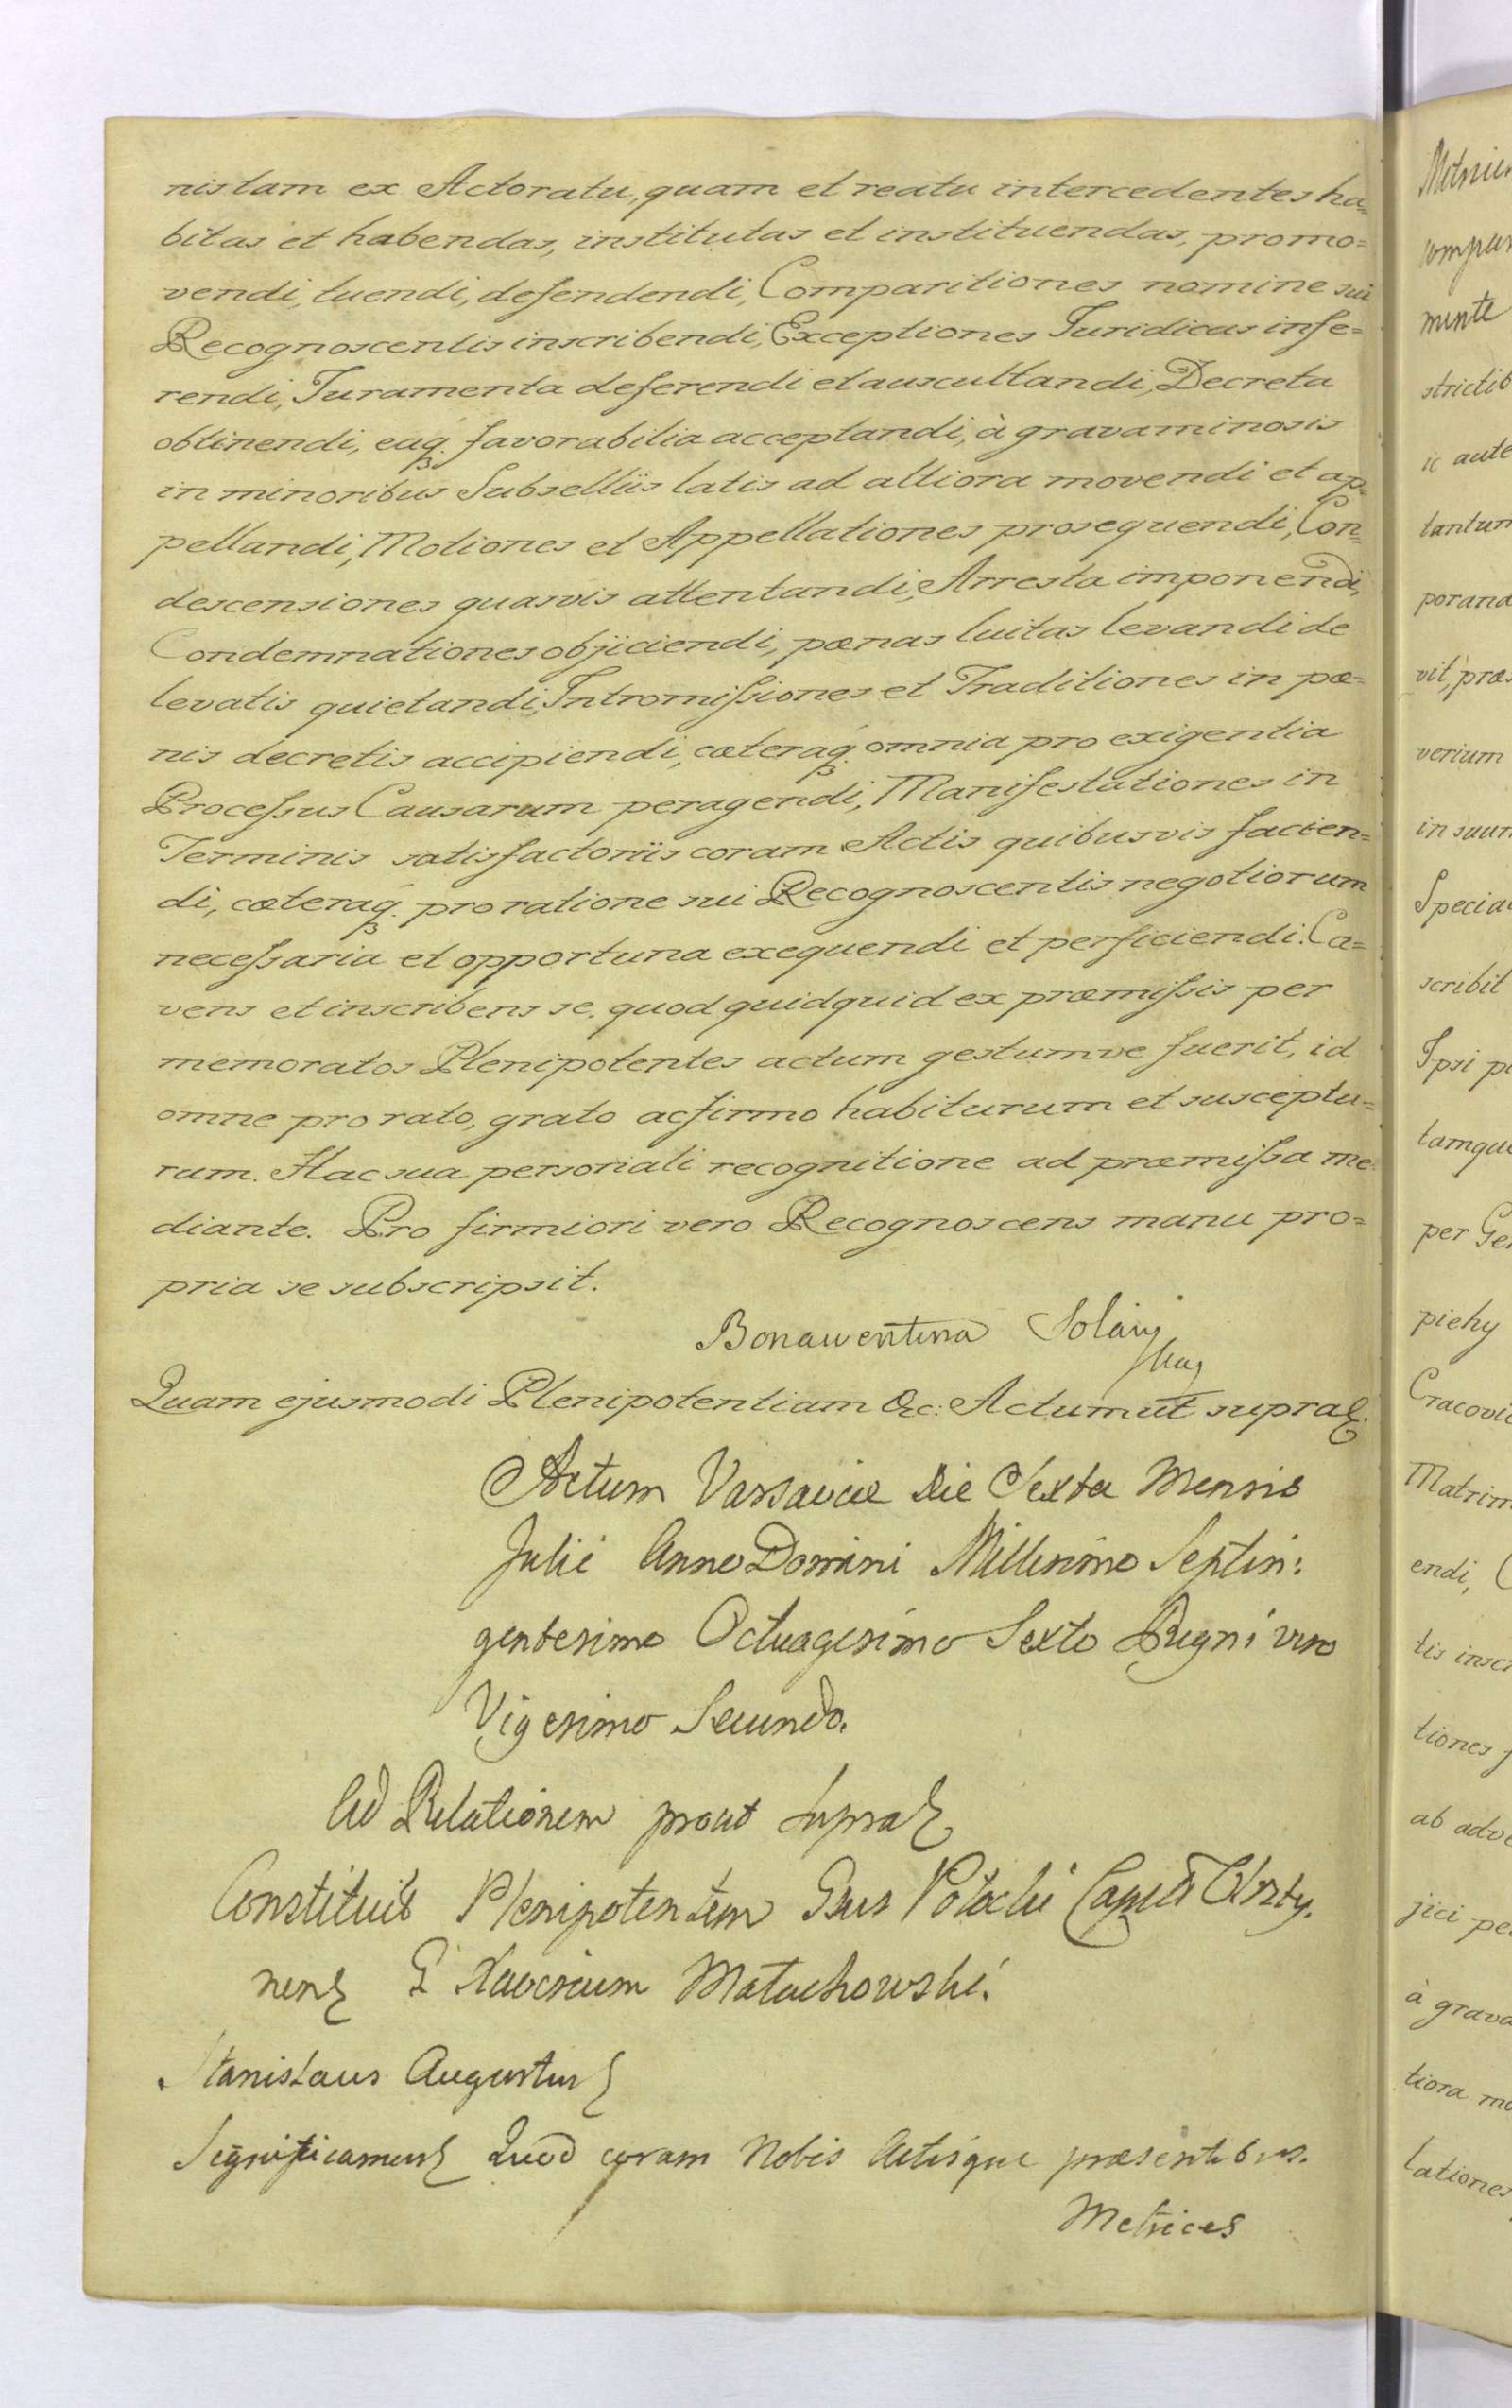 nis tam ex Actoratu, quam et reatu intercedentes ha=
bitas et habendas, institutas et instituendas, promo=
vendi, tuendi, defendendi, Comparitiones nomine sui
Recognoscentis inscribendi, Exceptiones Juridicas infe=
rendi, Juramenta deferendi et auscultandi, Decreta
obtinendi, eaq. favorabilia acceptandi, à gravaminosis
in minoribus Subselliis latis ad altiora movendi et ap=
pellandi, Motiones et Appellationes prosequendi, Con=
descensiones quasvis attentandi, Arresta imponendi,
Condemnationes objiciendi, pœnas luitas levandi de
levatis quietandi, Intromissiones et Traditiones in pœ=
nis decretis accipiendi, cæteraq. omnia pro exigentia
Processus Causarum peragendi, Manifestationes in
Terminis satisfactoriis coram Actis quibusvis facien=
di, cæteraq. pro ratione sui Recognoscentis negotiorum
necessaria et opportuna exequendi et perficiendi. Ca=
vens et inscribens se, quod quidquid ex præmissis per
memoratos Plenipotentes actum gestumve fuerit, id
omne pro rato, grato ac firmo habiturum et susceptu=
rum. Hac sua personali recognitione ad præmissa me=
diante. Pro firmiori vero Recognoscens manu pro=
pria se subscripsit.
Bonawentura
Quam ejusmodi Plenipotentiam &c: Actum ut supra
Actum Varsaviæ Die Sexta Mensis
Julii Anno Domini Millesimo Septin:
gentesimo Octuagesimo Sexto Regni vero
Vigesimo Secundo.
Ad Relationem prout supra
Constituit Plenipotentem Gsus Potocki
G Xaverium Matachowski.
Stanislaus Augustus
Significamus Quod coram Nobis Actisque præsentibus.
Metrices